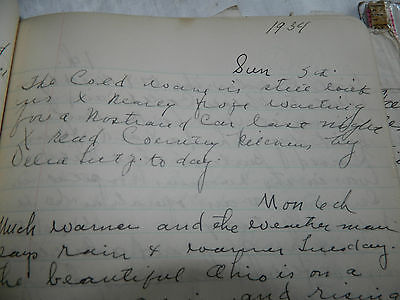 1934
Sun 3d.
The Cold wave is still with
us & nearly froze waiting
for a Nostrand Car last night
& read Country Kitchens by
Delia Lutz. to day.
Mon
Much warmer and the weather man
says rain & warmer Tuesday.
The beautiful Ohio is on a
and rising